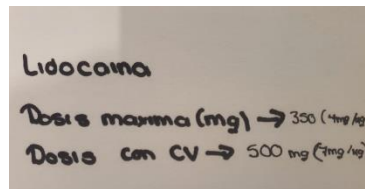 Lidocaina
Dosis maxima (mg) → 350 (4mg/kg
Dosis con CV → 500 mg (7mg/kg)